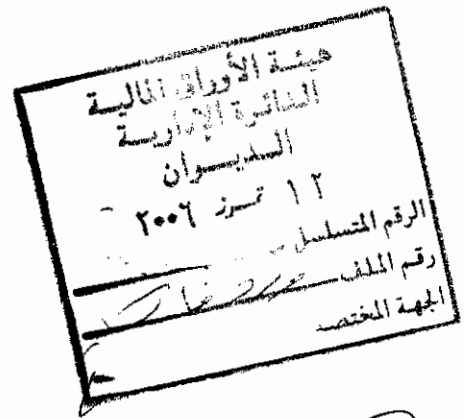 هيئة الأوراق المالية
الدائرة الإدارية
الديوان
١٢ تمـوز ٢٠٠٦
الرقم المتسلسل
رقم الملف
الجهة المختصة